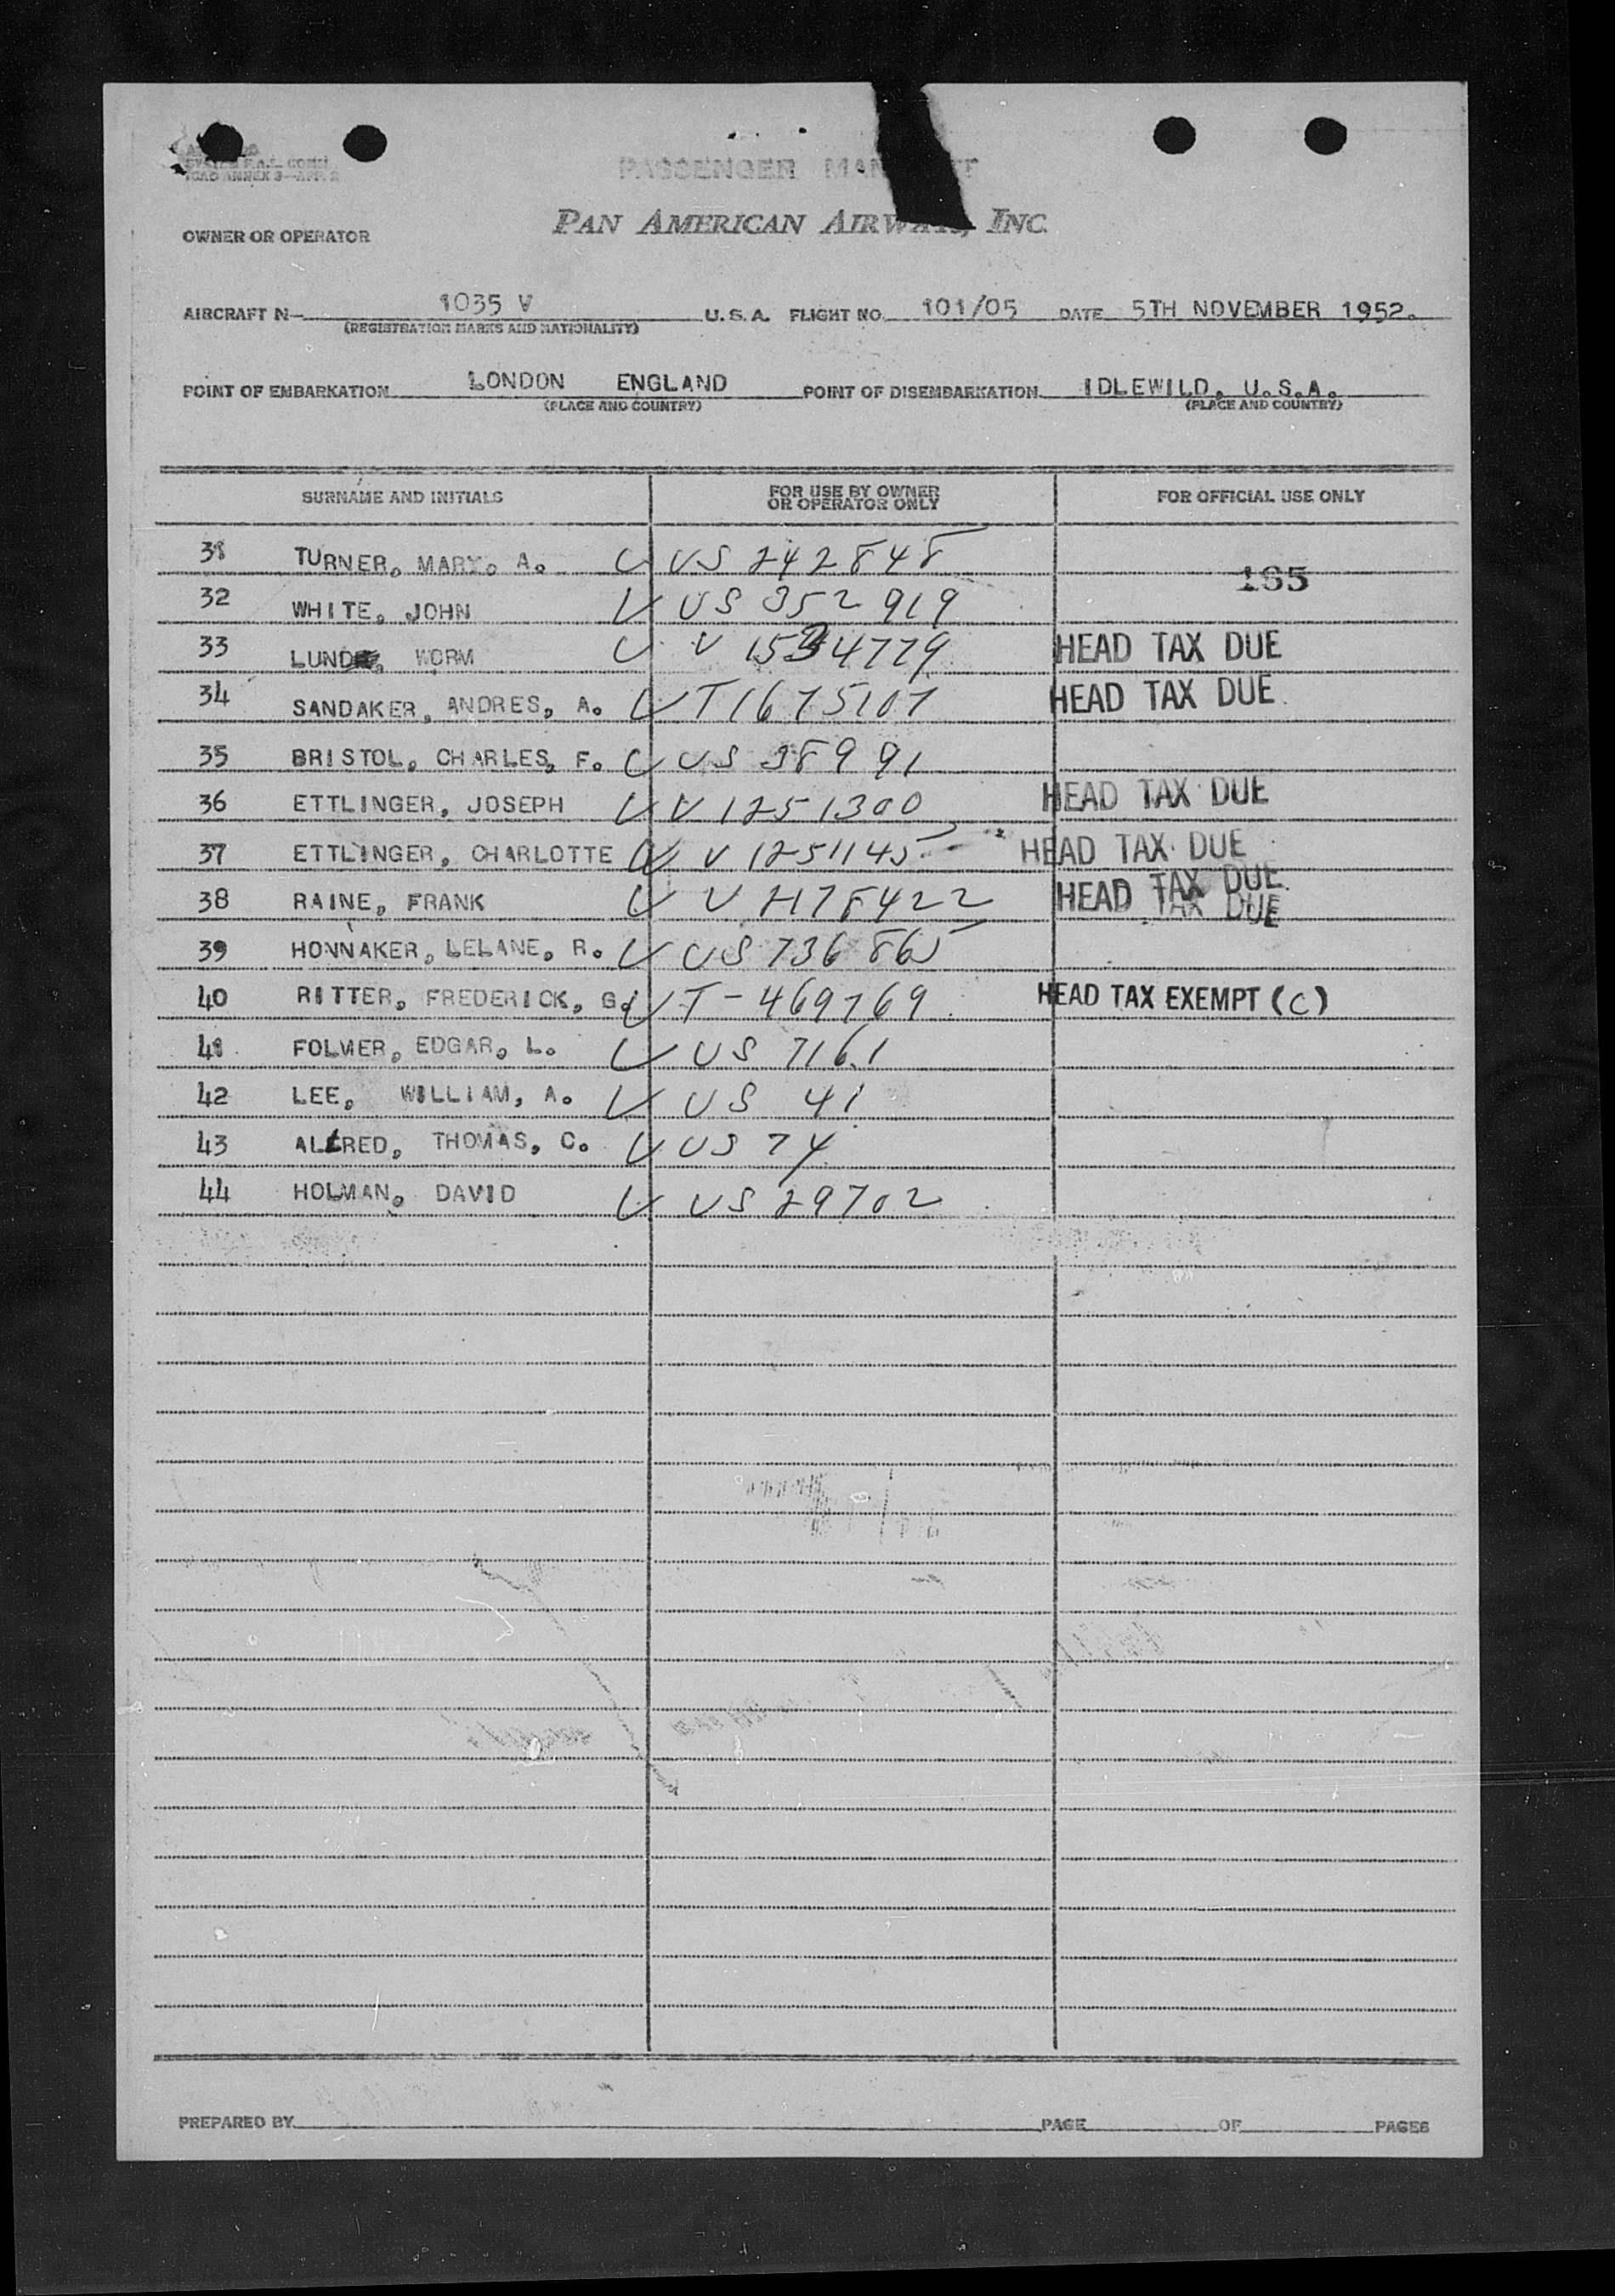 PASSENGER MAN
PAN AMERICAN AIRWAYS, INC.
OWNER OR OPERATOR
AIRCRAFT N— 1035 V U. S. A. FLIGHT NO. 101/05 DATE 5TH NOVEMBER 1952.
(REGISTRATION MARKS AND NATIONALITY)
POINT OF EMBARKATION LONDON ENGLAND POINT OF DISEMBARKATION IDLEWILD, U.S.A.
(PLACE AND COUNTRY) (PLACE AND COUNTRY)
SURNAME AND INITIALS FOR USE BY OWNER OR OPERATOR ONLY FOR OFFICIAL USE ONLY
31 TURNER, MARY. A. US 242848
185
32 WHITE, JOHN US 352919
33 LUND, WORM V 1534779 HEAD TAX DUE
34 SANDAKER, ANDRES, A. T1675107 HEAD TAX DUE
35 BRISTOL, CHARLES, F. US 38991
36 ETTLINGER, JOSEPH V 1251300 HEAD TAX DUE
37 ETTLINGER, CHARLOTTE V 1251145 HEAD TAX DUE
38 RAINE, FRANK V H78422 HEAD TAX DUE
TAX DUE
39 HONNAKER, LELANE, R. US 736865
40 RITTER, FREDERICK, G. T-469769 HEAD TAX EXEMPT (C)
41 FOLMER, EDGAR, L. US 7161
42 LEE, WILLIAM, A. US 41
43 ALLRED, THOMAS, C. US 74
44 HOLMAN, DAVID US 29702
PREPARED BY PAGE OF PAGES